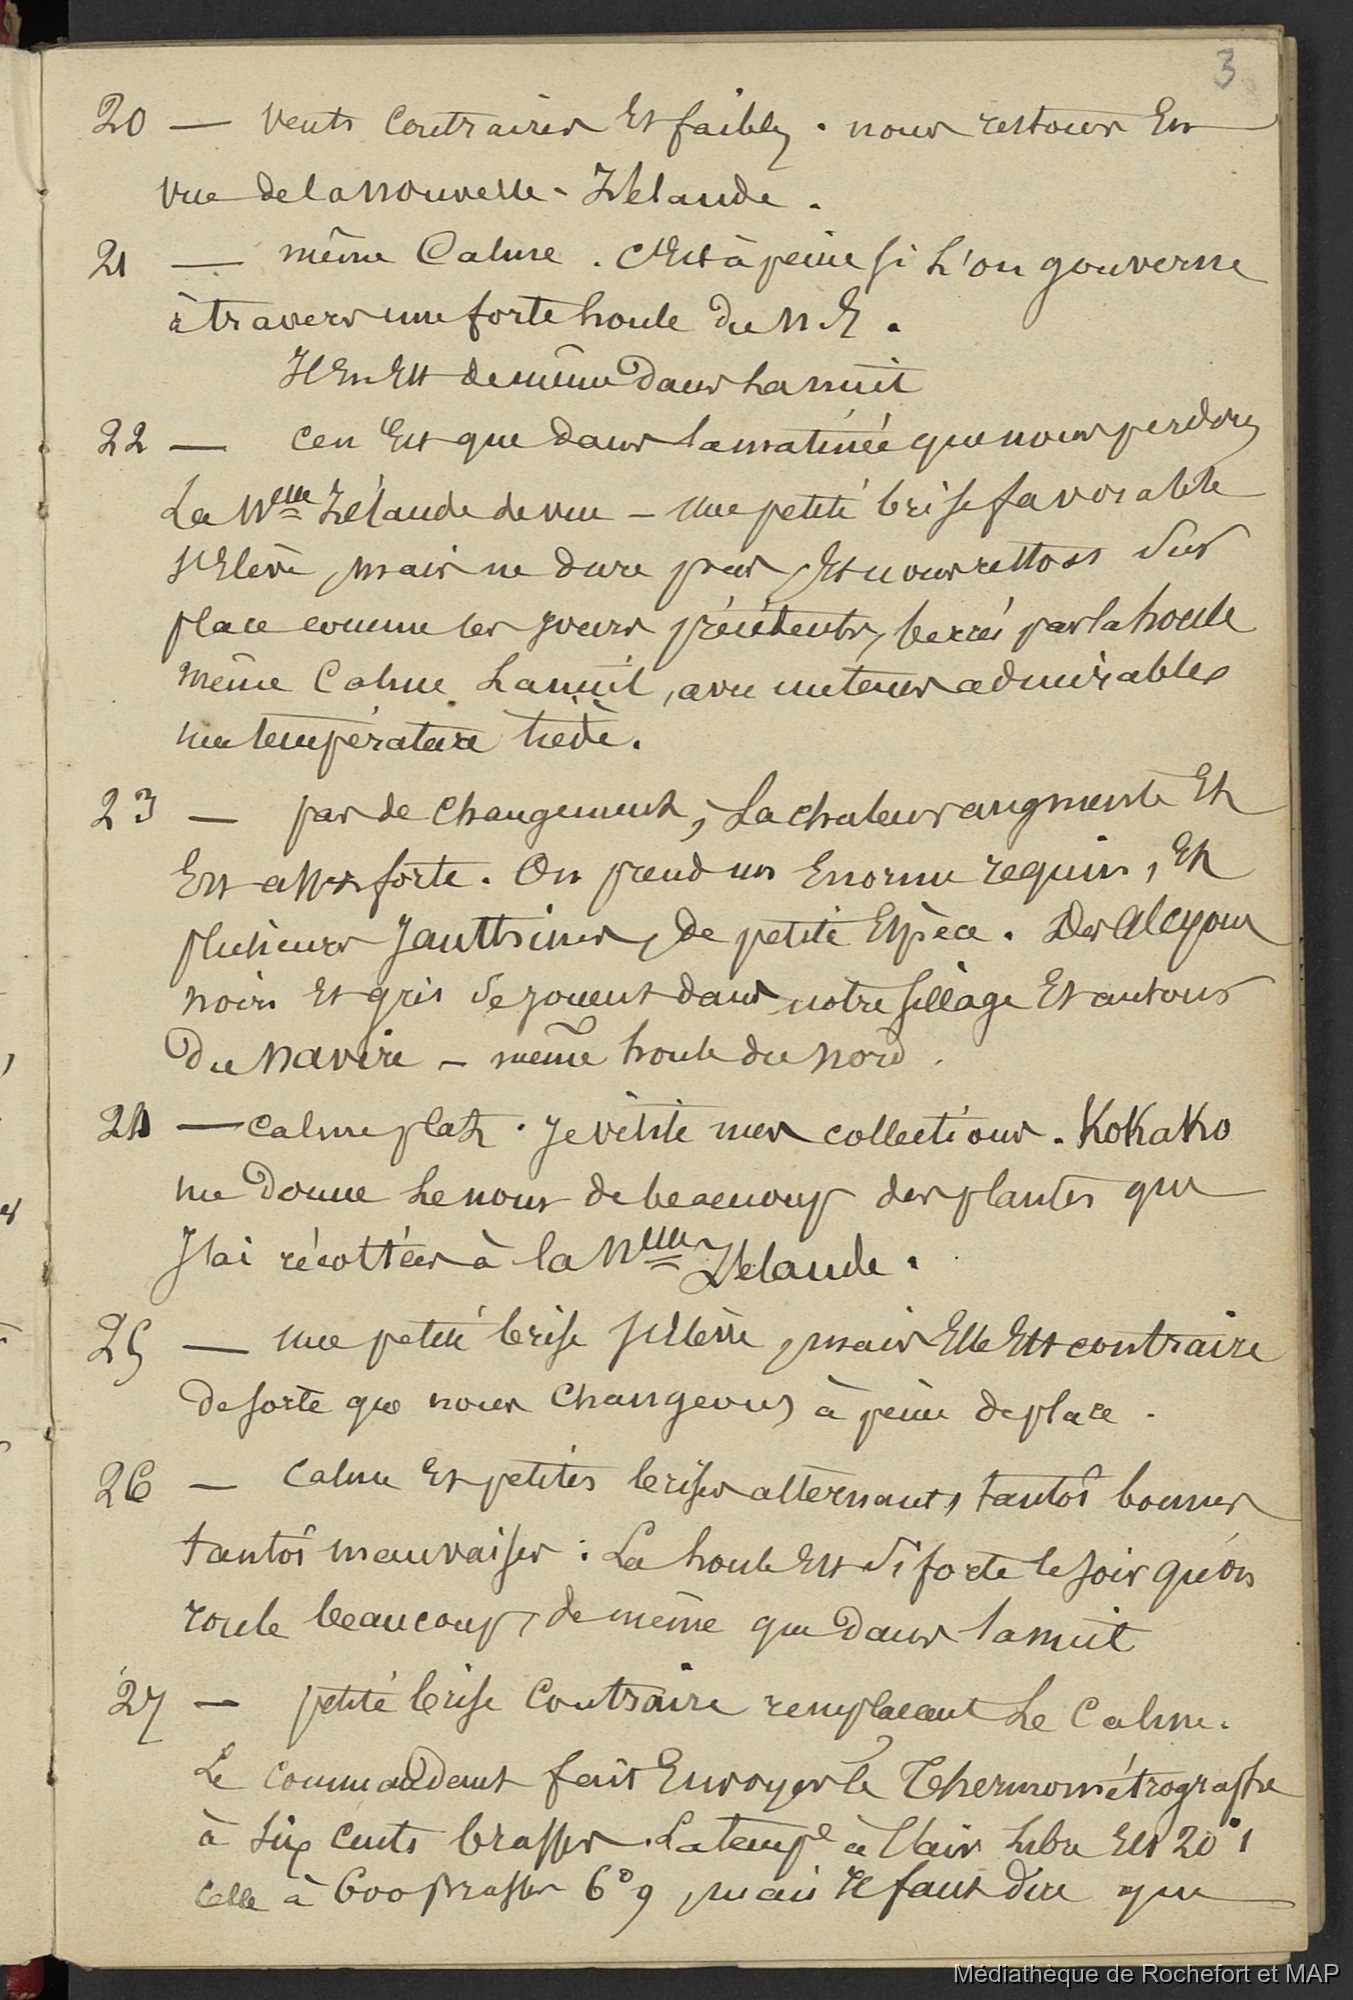 3
20 — vents contraires et faibles. nous restons en
vue de la nouvelle-Zélande.
21 — même calme. C'est à peine si l'on gouverne
à travers une forte houle du N.E.
Il en est de même dans la nuit
22 — ce n'est que dans la matinée que nous perdons
La Nelle Zélande de vue — une petite brise favorable
s'élève, mais ne dure pas, et nous restons sur
place comme les jours précédents, bercés par la houle
même calme la nuit, avec un temps admirable
une température tiède.
23 — pas de changement, La chaleur augmente et
est assez forte. On prend un énorme requin, et
plusieurs de petite espèce. Des alcyons
noirs et gris se jouent dans notre sillage et autour
du navire — même houle du nord.
24 — calme plat. Je visite mes collections. Kokako
me donne le nom de beaucoup des plantes que
j'ai récoltées à la Nelle Zélande.
25 — une petite brise s'élève, mais elle est contraire
de sorte que nous changeons à peine de place.
26 — calme et petites brises alternant, tantôt bonnes
tantôt mauvaises : La houle est si forte le soir qu'on
roule beaucoup, de même que dans la nuit
27 — petite brise contraire remplaçant le calme.
Le commandant fait envoyer le Thermométrographe
à six cents brasses. La tempe à l'air libre est 20°1
celle à 600 brasses 6°9, mais il faut dire que
Médiathèque de Rochefort et MAP